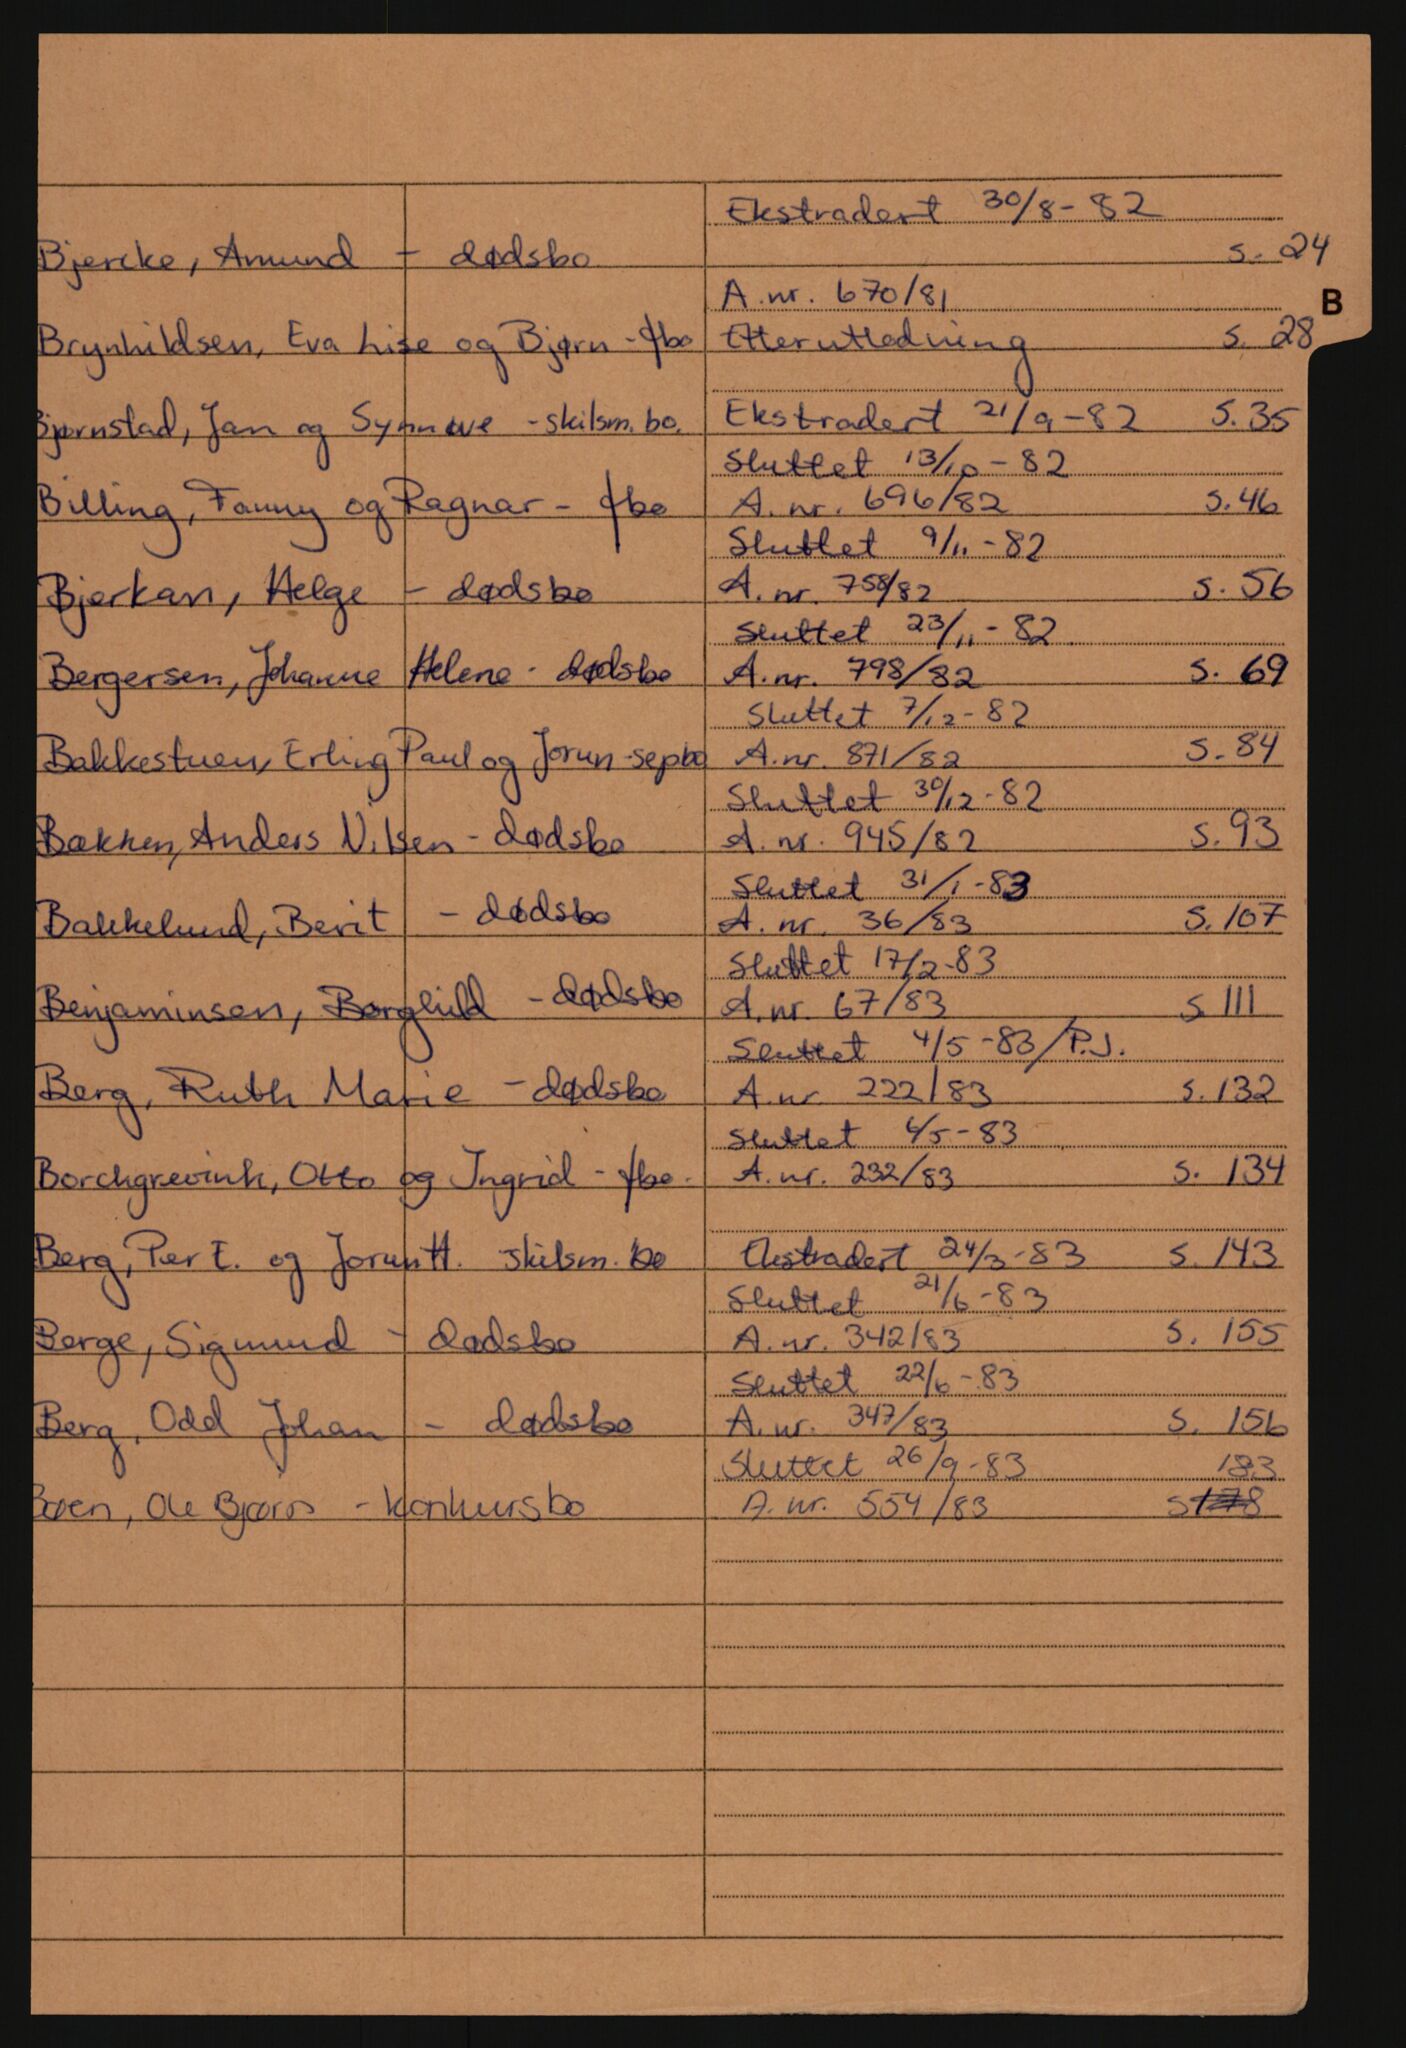 Ekstradert 30/8-82
Bjercke, Amund - dødsbo s. 24
A.nr. 670/81
B
Brynhildsen, Eva Lise og Bjørn - fbo Etterutledning s. 28
Bjørnstad, Jan og Synnøve - skilsm. bo. Ekstradert 21/9-82 S. 35
Sluttet 13/10-82
Billing, Fanny og Ragnar - fbo A. nr. 696/82 s. 46
Sluttet 9/11-82
Bjerkan, Helge - dødsbo A. nr. 758/82 s. 56
Sluttet 23/11-82
Bergersen, Johanne Helene - dødsbo A.nr. 798/82 s. 69
Sluttet 7/12-82
Bakkestuen, Erling Paul og Jorun - sepbo A.nr. 871/82 s. 84
Sluttet 30/12-82
Bakken, Anders Nilsen - dødsbo A. nr. 945/82 s. 93
Sluttet 31/1-83
Bakkelund, Berit - dødsbo A. nr. 36/83 s. 107
Sluttet 17/2-83
Benjaminsen, Borghild - dødsbo A.nr. 67/83 s 111
Sluttet 4/5-83/P.J.
Berg, Ruth Marie - dødsbo A. nr. 222/83 s. 132
Sluttet 4/5-83
Borchgrevink, Otto og Ingrid - fbo. A. nr. 232/83 s. 134
Berg, Per E. og Jorun H. skilsm. bo Ekstradert 24/3-83 s. 143
Sluttet 21/6-83
Berge, Sigmund - dødsbo A. nr. 342/83 s. 155
Sluttet 22/6-83
Berg, Odd Johan - dødsbo A. nr. 347/83 s. 156
Sluttet 26/9-83 183
Ole - konkursbo A. nr. 554/83 s 178